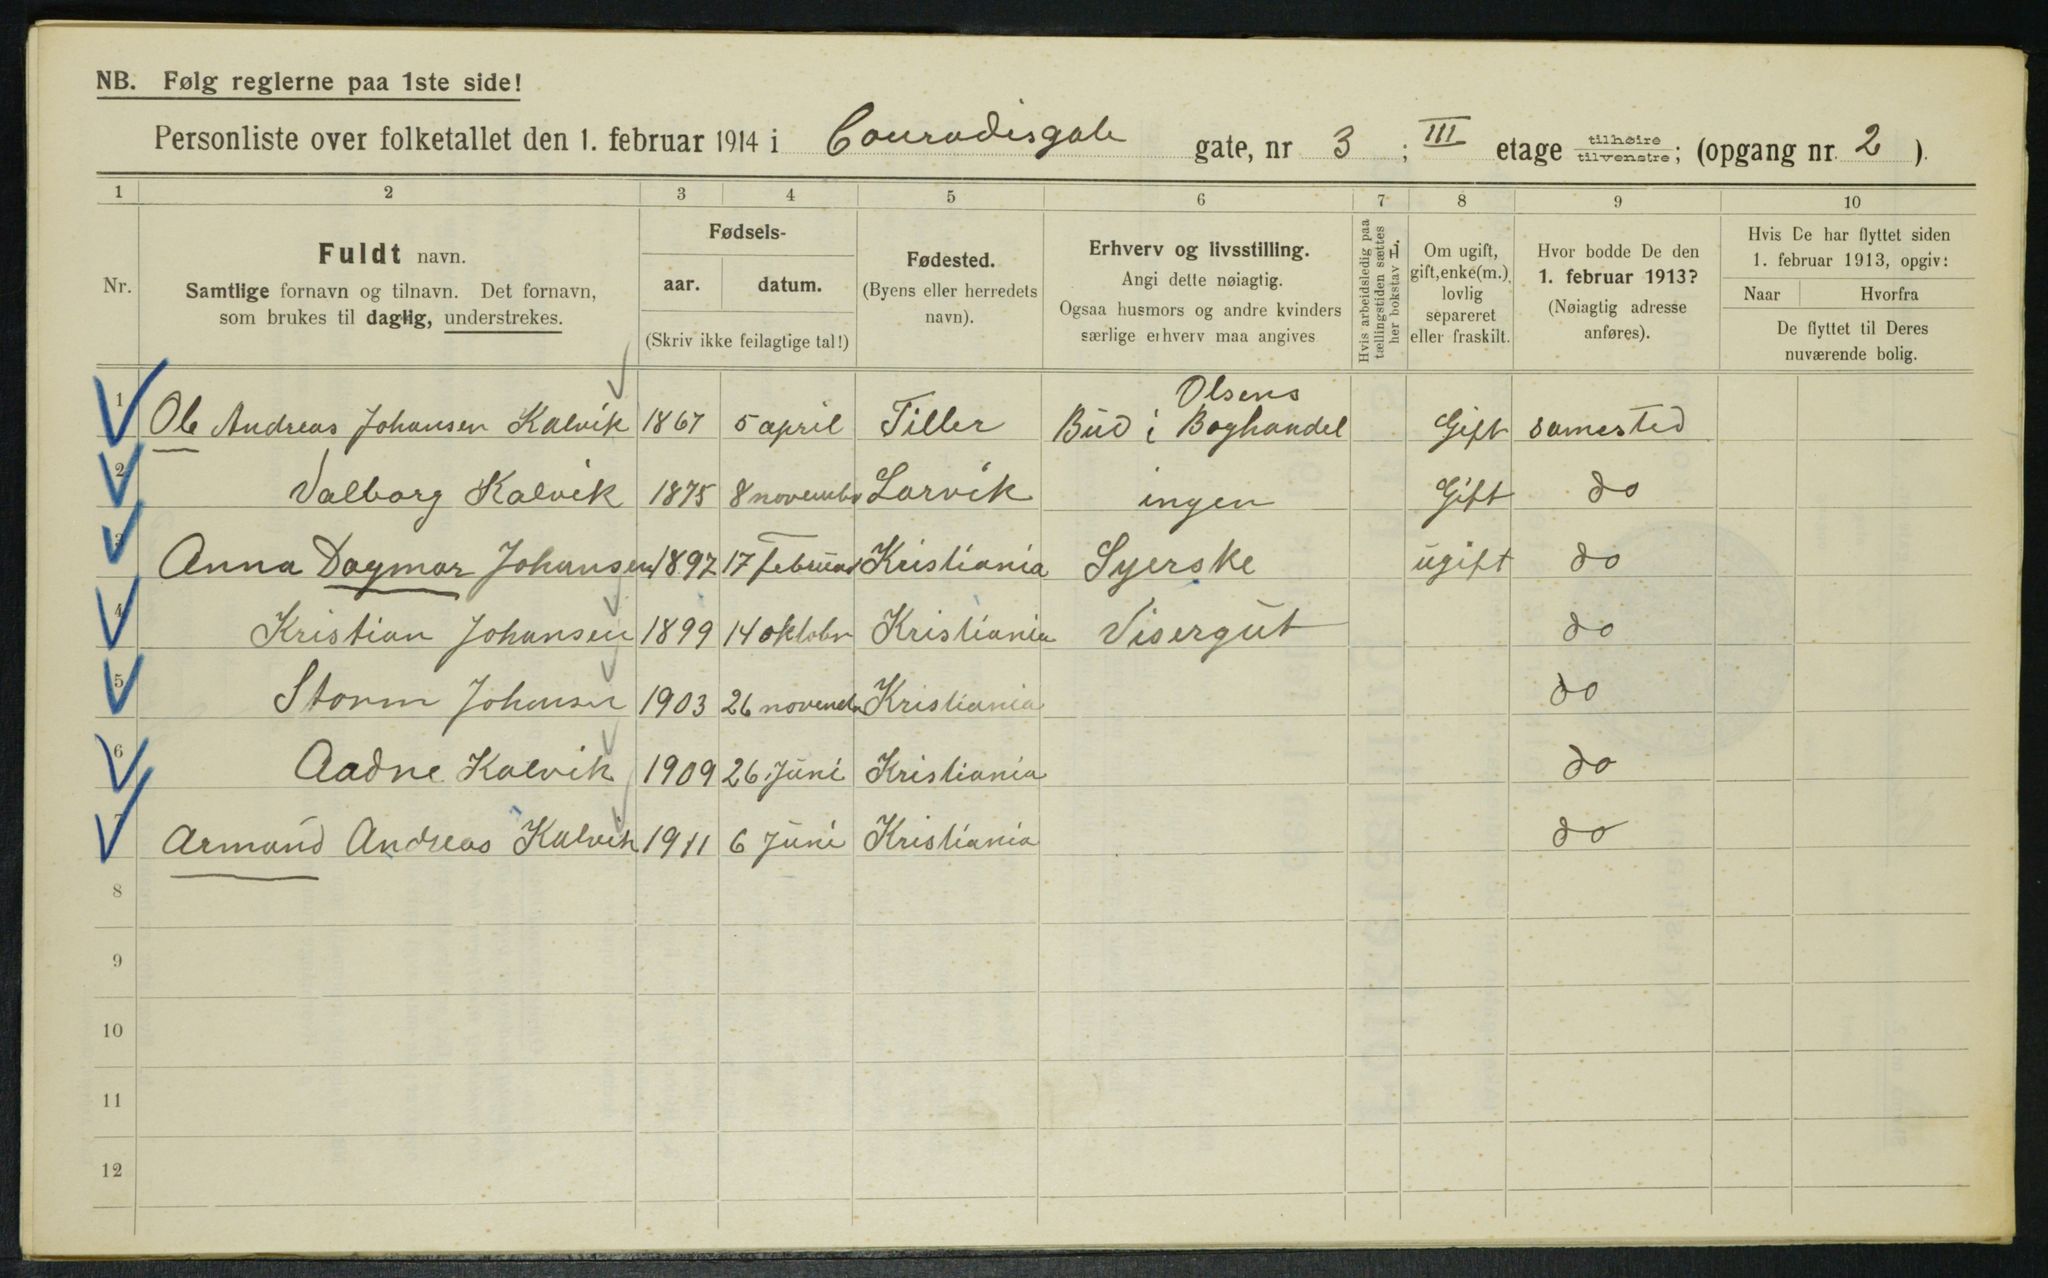 NB. Følg reglerne paa 1ste side!
Personliste over folketallet den 1. februar 1914 i Conradisgate gate, nr 3 ; III etage tilhøire tilvenstre; (opgang nr. 2 ).
1 2 3 4 5 6 7 8 9 10
Nr.
Fuldt navn.
Samtlige fornavn og tilnavn. Det fornavn,
som brukes til daglig, understrekes.
Fødsels-
aar. datum.
(Skriv ikke feilagtige tal!)
Fødested.
(Byens eller herredets
navn).
Erhverv og livsstilling.
Angi dette nøiagtig.
Ogsaa husmors og andre kvinders
særlige erhverv maa angives
Hvis arbeidsledig paa
tællingstiden sættes
her bokstav L.
Om ugift,
gift, enke(m.),
lovlig
separeret
eller fraskilt.
Hvor bodde De den
1. februar 1913?
(Nøiagtig adresse
anføres).
Hvis De har flyttet siden
1. februar 1913, opgiv:
Naar Hvorfra
De flyttet til Deres
nuværende bolig.
1 Ole Andreas Johansen Kalvik 1867 5 april Tiller Bud i Olsens Boghandel Gift samested
2 Valborg Kalvik 1875 8 novembr Larvik ingen Gift do
3 Anna Dagmar Johansen 1897 17 februar Kristiania Syerske ugift do
4 Kristian Johansen 1899 14 oktobr Kristiania Visergut do
5 Storm Johansen 1903 26 novembr Kristiania do
6 Aadne Kalvik 1909 26 Juni Kristiania do
7 Armand Andreas Kalvik 1911 6 Juni Kristiania do
8
9
10
11
12